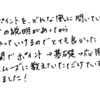 ポイントを、どんな風に聞いてい
の説明があってから
入っているのでとても良かった
問でポイント→基礎→応用
ムーズに教えていただけていま
ました!